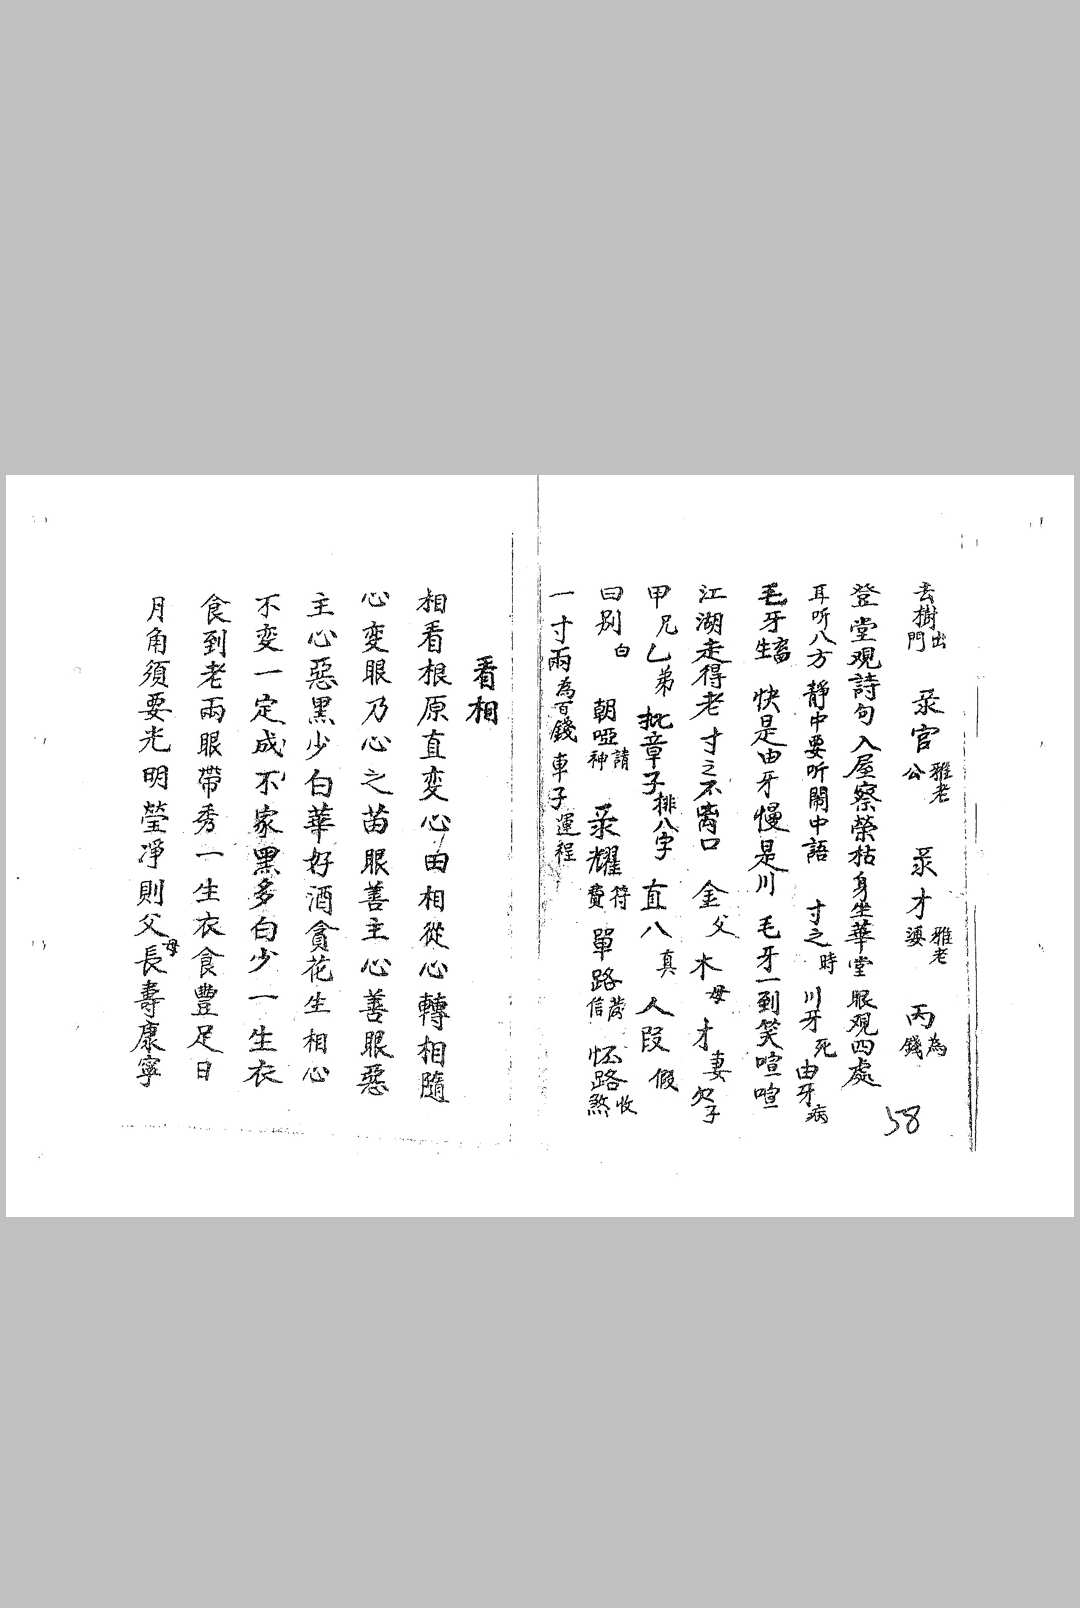 去樹出門 彔官雅老公 彔才雅老婆 丙為錢
登堂观詩句入屋察榮枯身坐華堂眼观四處
耳听八方 靜中要听鬧中語 寸之時 川牙死 由牙病
毛牙畜生 快是由牙慢是川 毛牙一到笑喧喧
江湖走得老寸之不离口 金父 木母 才妻 欠子
甲兄乙弟 批章子排八字 直八真 人段假
曰别白 朝啞請神 彔耀符費 單路信 怀路收煞
一寸兩為百錢 車子運程
58
看相
相看根原直变心由相從心轉相隨
心变眼乃心之苗眼善主心善眼惡
主心惡黑少白華好酒貪花生相心
不变一定成不家黑多白少一生衣
食到老兩眼帶秀一生衣食豐足日
月角須要光明瑩净則父母長壽康寧